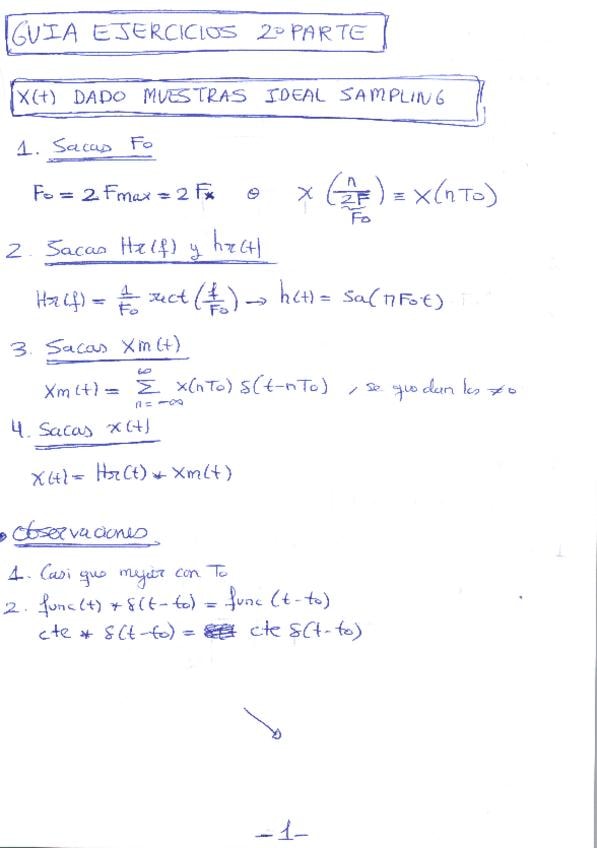 GUIA EJERCICIOS 2º PARTE
X(t) DADO MUESTRAS IDEAL SAMPLING
1. Sacas Fo
Fo = 2 Fmax = 2 Fx o X (n/2F) ≡ X(nTo)
Fo
2. Sacas Hr(f) y hr(t)
Hr(f) = 1/Fo rect (f/Fo) → h(t) = Sa(πFot)
3. Sacas Xm(t)
Xm(t) = ∞∑n=-∞ x(nTo) δ(t-nTo) , se quedan los ≠0
4. Sacas x(t)
X(t) = Hr(t) * Xm(t)
• Observaciones
1. Casi que mejor con To
2. func(t) * δ(t-to) = func (t-to)
cte * δ(t-to) = cte δ(t-to)
-1-